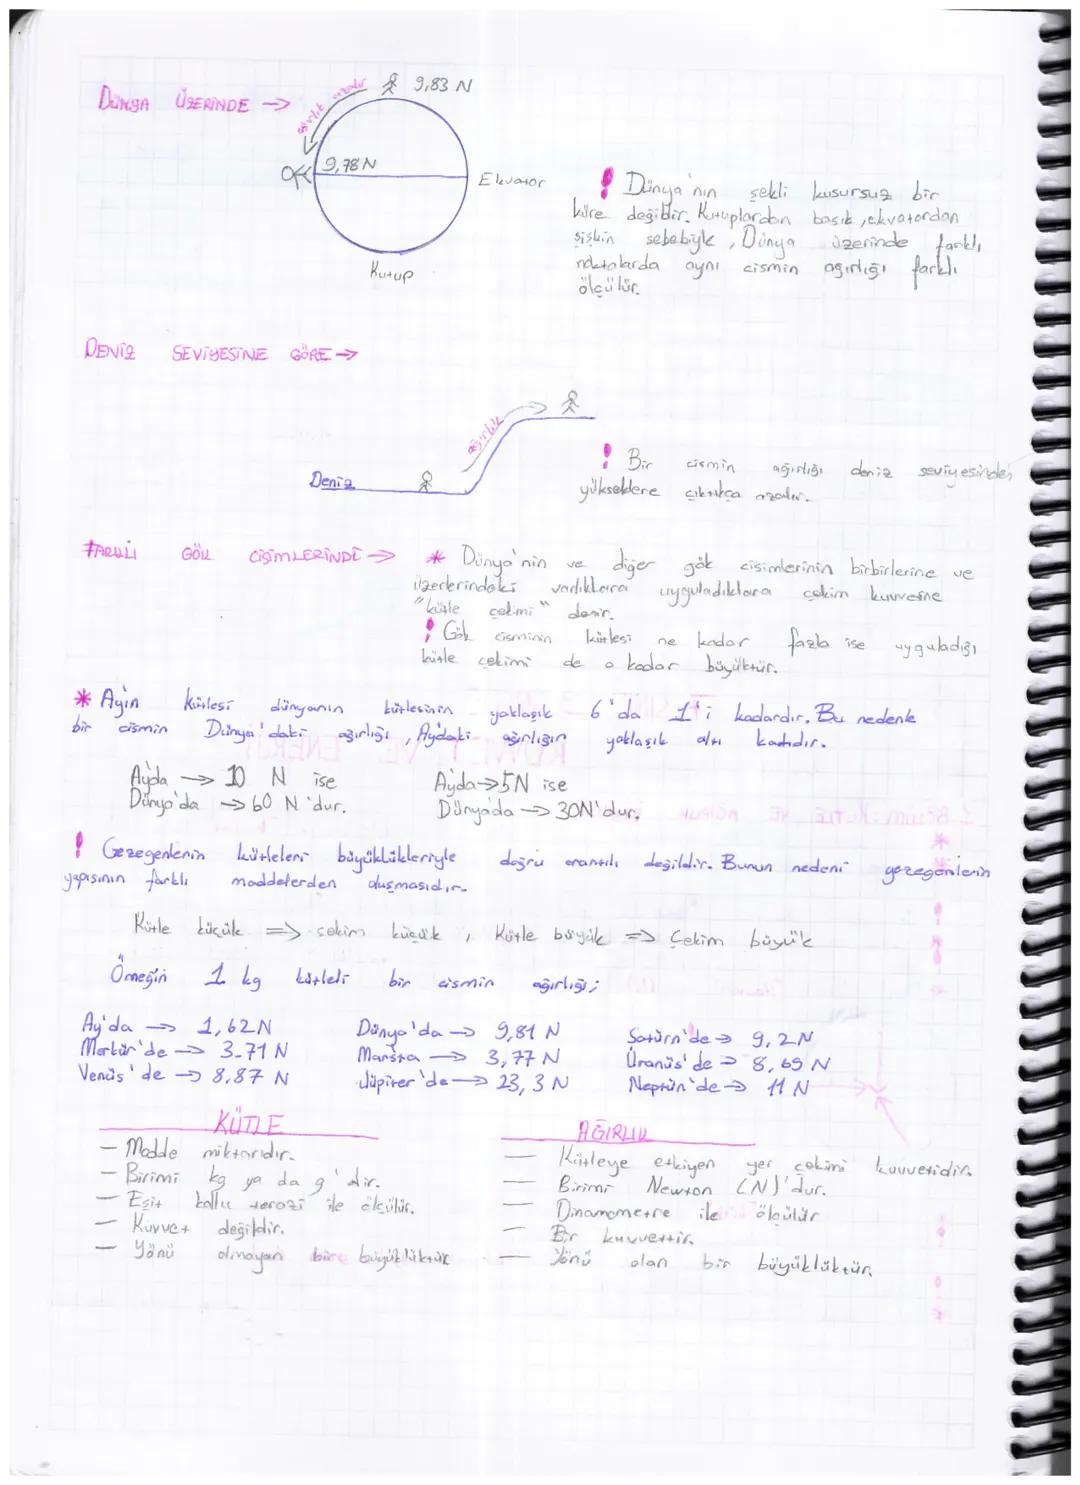 DÜNYA ÜZERİNDE →
ağırlık azalır
9,83 N
9,78 N
Ekvator
Kutup
! Dünya'nın şekli kusursuz bir
küre değildir. Kutuplardan basık, ekvatordan
şişkin sebebiyle, Dünya üzerinde farklı
noktalarda aynı cismin ağırlığı farklı
ölçülür.
DENİZ SEVİYESİNE GÖRE →
ağırlık
Deniz
! Bir cismin ağırlığı deniz seviyesinden
yükseklere çıktıkça azalır.
FARKLI GÖK CİSİMLERİNDE →
* Dünya'nın ve diğer gök cisimlerinin birbirlerine ve
üzerlerindeki varlıklara uyguladıklara çekim kuvvesine
"kütle çekimi" denir.
! Gök cisminin kütlesi ne kadar fazla ise uyguladığı
kütle çekimi de o kadar büyüktür.
* Ayın kütlesi dünyanın kütlesinin yaklaşık 6'da 1'i kadardır. Bu nedenle
bir cismin Dünya'daki ağırlığı, Ay'daki ağırlığın yaklaşık altı katıdır.
Ayda → 10 N ise
Dünya'da → 60 N'dur.
Ayda → 5N ise
Dünyada → 30N'dur.
! Gezegenlerin kütleleri büyüklükleriyle doğru orantılı değildir. Bunun nedeni gezegenlerin
yapısının farklı maddelerden oluşmasıdır.
Kütle küçük => çekim küçük, Kütle büyük => Çekim büyük
Örneğin 1 kg kütleli bir cismin ağırlığı;
Ay'da → 1,62N
Merkür'de → 3.71 N
Venüs'de → 8,87 N
Dünya'da → 9,81 N
Marsta → 3,77 N
Jüpiter'de → 23,3 N
Satürn'de → 9,2N
Üranüs'de → 8,69 N
Neptün'de → 11 N
KÜTLE
— Madde miktarıdır.
— Birimi kg ya da g'dır.
— Eşit kollu terazi ile ölçülür.
— Kuvvet değildir.
— Yönü olmayan bire büyüklüktür
AĞIRLIK
— Kütleye etkiyen yer çekimi kuvvetidir.
— Birimi Newton (N)'dur.
— Dinamometre ile ölçülür
— Bir kuvvettir.
— Yönü olan bir büyüklüktür.